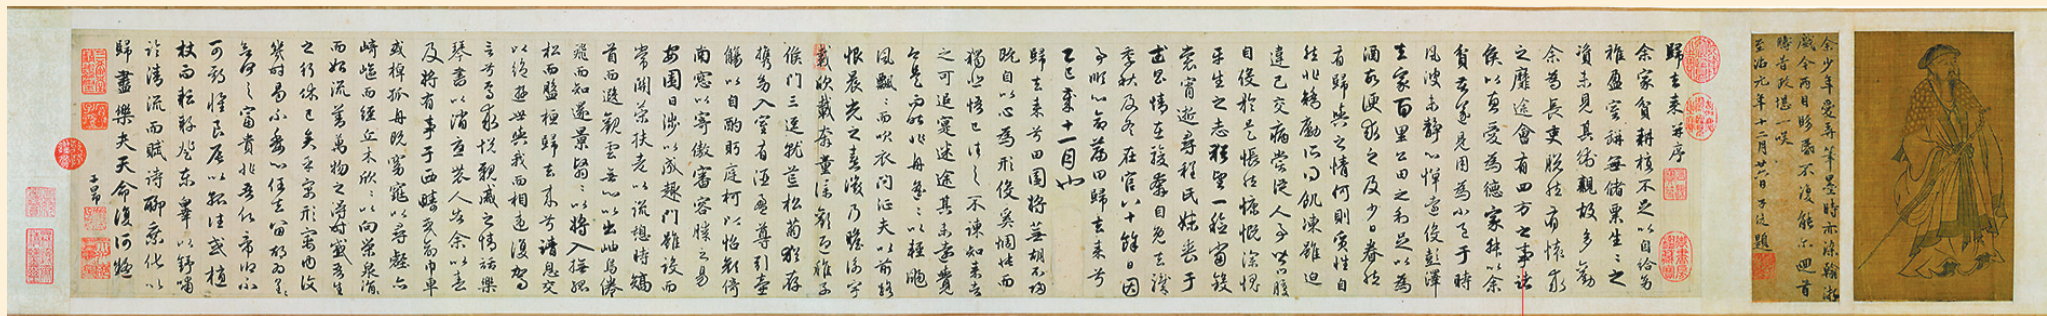 余少年愛弄筆墨時亦染翰游
戲今兩目眵昏不復能尔迴首
疇昔政堪一咲
至治元年十二月廿六日子
題
歸去來并序
余家貧耕植不足以自給幼
稚盈室缾無儲粟生〻之
資未見其術親故多勸
余為長吏脫然有懷求
之靡途會有四方之事諸
侯以惠愛為德家叔以余
貧苦遂見用為小邑于時
風波未靜心憚遠役彭澤
去家百里公田之利足以為
酒故便求之及少日眷然
有歸與之情何則質性自
然非矯勵所得飢凍雖迫
違己交病嘗從人事皆口腹
自役於是悵然慷慨深愧
平生之志猶望一稔當斂
裳宵逝尋程氏妹喪于
武昌情在駿奔自免去職
季秋及冬在官八十餘日因
事順心命篇曰歸去來兮
乙巳歲十一月也
歸去來兮田園將蕪胡不歸
既自以心為形役奚惆悵而
獨悲悟已往之不諫知來者
之可追寔迷途其未遠覺
今是而昨非舟遙〻以輕颺
風飄〻而吹衣問征夫以前路
恨晨光之熹微乃瞻衡宇
載欣載奔童僕歡迎稚子
候門三逕就荒松菊猶存
攜幼入室有酒盈尊引壺
觴以自酌眄庭柯以怡顏倚
南窗以寄傲審容膝之易
安園日涉以成趣門雖設而
常關策扶老以流憩時矯
首而遐觀雲無心以出岫鳥倦
飛而知還景翳〻以將入撫孤
松而盤桓歸去來兮請息交
以絕遊世與我而相違復駕
言兮焉求悅親戚之情話樂
琴書以消憂農人告余以春
及將有事于西疇或命巾車
或棹孤舟既窈窕以尋壑亦
崎嶇而經丘木欣〻以向榮泉涓〻
而始流善萬物之得時感吾生
之行休已矣乎寓形宇內復
幾時曷不委心任去留胡為
兮何之富貴非吾願帝鄉不
可期懷良辰以孤往或植
杖而耘耔登東皋以舒嘯
臨清流而賦詩聊乘化以
歸盡樂夫天命復何疑
子昂